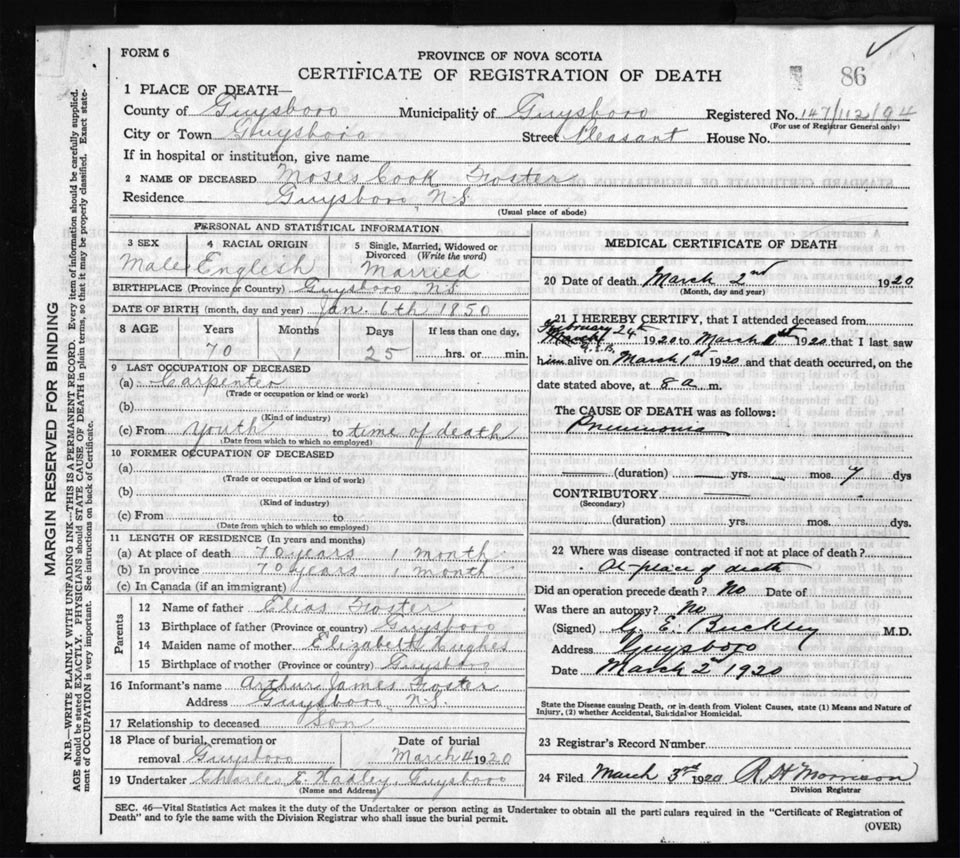 FORM 6
PROVINCE OF NOVA SCOTIA
CERTIFICATE OF REGISTRATION OF DEATH
86
1 PLACE OF DEATH—
County of Guysboro Municipality of Guysboro Registered No. 147/112/94
(For use of Registrar General only)
City or Town Guysboro Street Pleasant House No.
If in hospital or institution, give name
2 NAME OF DECEASED Moses Cook Foster
Residence Guysboro N.S.
(Usual place of abode)
PERSONAL AND STATISTICAL INFORMATION
3 SEX 4 RACIAL ORIGIN 5 Single, Married, Widowed or Divorced (Write the word)
Male English Married
BIRTHPLACE (Province or Country) Guysboro N.S.
DATE OF BIRTH (month, day and year) Jan. 6th 1850
8 AGE Years Months Days If less than one day,
70 1 25 hrs. or min.
9 LAST OCCUPATION OF DECEASED
(a) Carpenter
(Trade or occupation or kind or work)
(b)
(Kind of industry)
(c) From youth to time of death
(Date from which to which so employed)
10 FORMER OCCUPATION OF DECEASED
(a)
(Trade or occupation or kind of work)
(b)
(Kind of industry)
(c) From to
(Date from which to which so employed)
11 LENGTH OF RESIDENCE (In years and months)
(a) At place of death 70 years 1 month
(b) In province 70 years 1 month
(c) In Canada (if an immigrant)
Parents
12 Name of father Elias Foster
13 Birthplace of father (Province or country) Guysboro
14 Maiden name of mother Elizabeth Hughes
15 Birthplace of mother (Province or country) Guysboro
16 Informant's name Arthur James Foster
Address Guysboro N.S.
17 Relationship to deceased Son
18 Place of burial, cremation or removal Guysboro Date of burial March 4 1920
19 Undertaker Charles E. Guysboro
(Name and Address)
MEDICAL CERTIFICATE OF DEATH
20 Date of death March 2nd 1920
(Month, day and year)
21 I HEREBY CERTIFY, that I attended deceased from
February 24th
March 1920 to March 1st 1920 that I last saw
him alive on March 1st 1920 and that death occurred, on the
date stated above, at 8 a m.
The CAUSE OF DEATH was as follows:
Pneumonia
(duration) yrs. mos. 7 dys
CONTRIBUTORY
(Secondary)
(duration) yrs. mos. dys.
22 Where was disease contracted if not at place of death?
At place of death
Did an operation precede death? No Date of
Was there an autopsy? No
(Signed) G. E. Buckley M.D.
Address Guysboro
Date March 2nd 1920
State the Disease causing Death, or in death from Violent Causes, state (1) Means and Nature of
Injury, (2) whether Accidental, Suicidal or Homicidal.
23 Registrar's Record Number
24 Filed March 3rd 1920 R. H. Morrison
Division Registrar
SEC. 46—Vital Statistics Act makes it the duty of the Undertaker or person acting as Undertaker to obtain all the particulars required in the "Certificate of Registration of
Death" and to fyle the same with the Division Registrar who shall issue the burial permit.
(OVER)
MARGIN RESERVED FOR BINDING
N.B.—WRITE PLAINLY WITH UNFADING INK—THIS IS A PERMANENT RECORD. Every item of information should be carefully supplied.
AGE should be stated EXACTLY. PHYSICIANS should STATE CAUSE OF DEATH in plain terms, so that it may be properly classified. Exact state-
ment of OCCUPATION is very important. See instructions on back of Certificate.